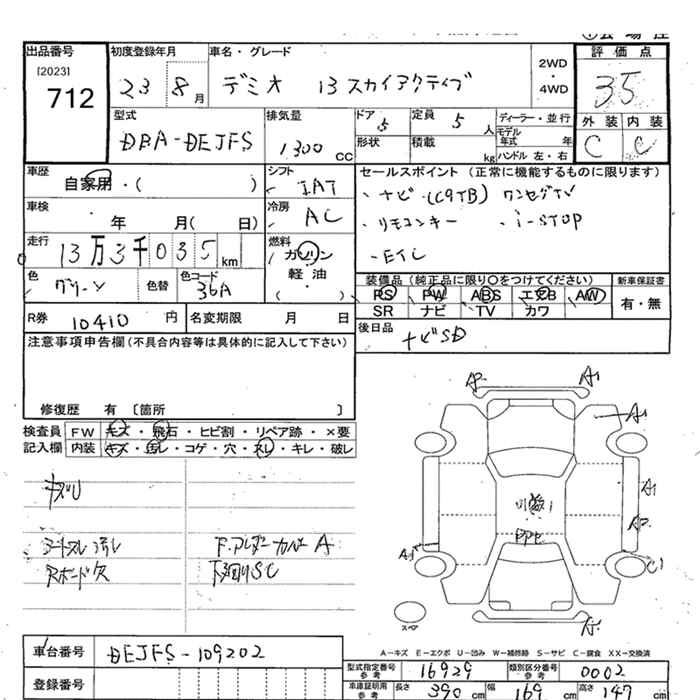 出品番号 初度登録年月 車名・グレード 2WD・4WD 評価点
[2023]
712 23 8月 デミオ 13 スカイアクティブ 35
型式 排気量 ドア 5 定員 5人 ディーラー・並行 外装 内装
DBA-DEJFS 1300 CC 形状 積載 kg モデル年式 年 C C
ハンドル 左・右
車歴 シフト セールスポイント (正常に機能するものに限ります)
自家用・( ) IAT ・ナビ(C9TB) ワンセグTV
車検 年 月( 日) 冷房 AC ・リモコンキー ・i-STOP
走行 13万3千035km 燃料 ガソリン ・ETC
軽・油
( )
色 グリーン 色替 色コード 36A 装備品 (純正品に限り○をつけてください) 新車保証書
PS PW ABS エアB AW 有・無
R券 10410円 名変期限 月 日 SR ナビ TV カワ
注意事項申告欄(不具合内容等は具体的に記入して下さい) 後日品 ナビSD
修復歴 有 〔箇所 〕
検査員 FW キズ・飛石・ヒビ割・リペア跡・×要
記入欄 内装 キズ・汚レ・コゲ・穴・スレ・キレ・破レ
キズU
シートスレ 汚レ 下.アンダーカバー A
Rボード欠 下回りSC
AP A1
A1
A1
AP
A1 C1
PPL
スペア
A-キズ E-エクボ U-凹み W-補修跡 S-サビ C-腐食 XX-交換済
車台番号 DEJFS-109202
型式指定番号 参考 16929 類別区分番号 参考 0002
登録番号 車庫証明用 参考 長さ 390 cm 幅 169 cm 高さ 147 cm